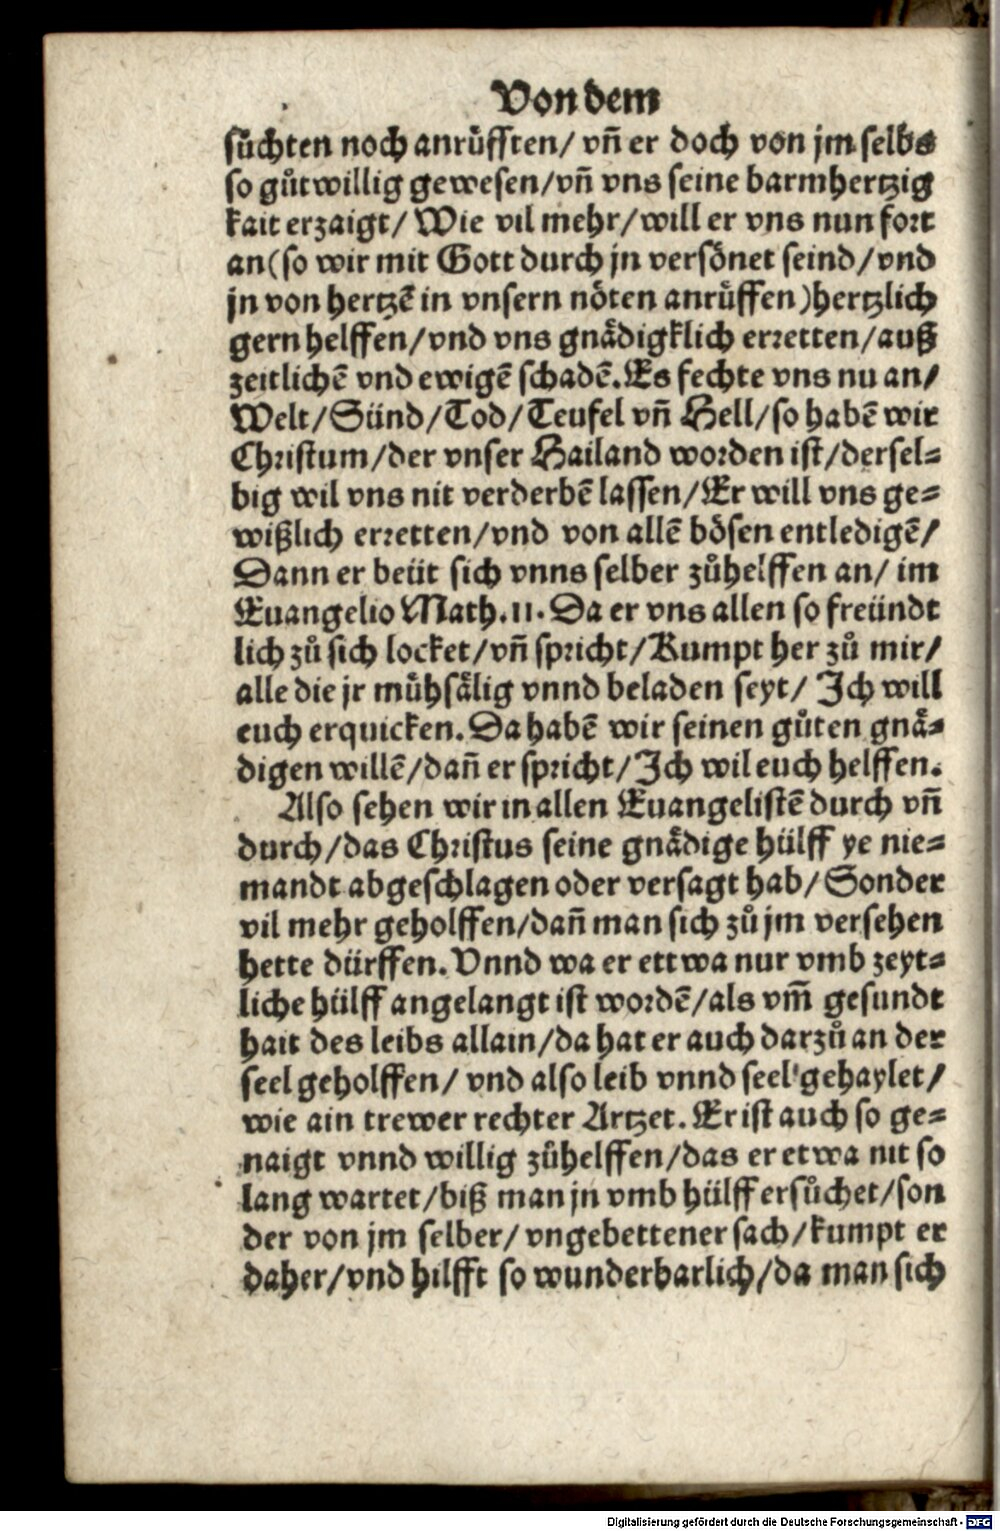 Von dem
sůchten noch anrůfften/ vñ er doch von jm selbs
so gůtwillig gewesen/vñ vns seine barmhertzig
kait erzaigt/ Wie vil mehr/will er vns nun fort
an(so wir mit Gott durch jn versönet seind/vnd
jn von hertzē in vnsern nöten anrůffen)hertzlich
gern helffen/vnd vns gnädigklich erretten/auß
zeitlichē vnd ewigē schadē. Es fechte vns nu an/
Welt/Sünd/Tod/Teufel vñ Hell/so habē wir
Christum/der vnser Hailand worden ist/dersel-
big wil vns nit verderbē lassen/Er will vns ge-
wißlich erretten/vnd von allē bösen entledigē/
Dann er beüt sich vnns selber zůhelffen an/ im
Euangelio Math. 11. Da er vns allen so freündt
lich zů sich locket/vñ spricht/Kumpt her zů mir/
alle die jr mühsälig vnnd beladen seyt/ Ich will
euch erquicken. Da habē wir seinen gůten gnä-
digen willē/dañ er spricht/Ich wil euch helffen.
Also sehen wir in allen Euangelistē durch vñ
durch/das Christus seine gnädige hülff ye nie-
mandt abgeschlagen oder versagt hab/Sonder
vil mehr geholffen/dañ man sich zů jm versehen
hette dürffen. Vnnd wa er ettwa nur vmb zeyt-
liche hülff angelangt ist wordē/als vm̄ gesundt
hait des leibs allain/da hat er auch darzů an der
seel geholffen/ vnd also leib vnnd seel gehaylet/
wie ain trewer rechter Artzet. Er ist auch so ge-
naigt vnnd willig zůhelffen/das er etwa nit so
lang wartet/biß man jn vmb hülff ersůchet/son
der von jm selber/ vngebettener sach/kumpt er
daher/vnd hilfft so wunderbarlich/da man sich
Digitalisierung gefördert durch die Deutsche Forschungsgemeinschaft - DFG